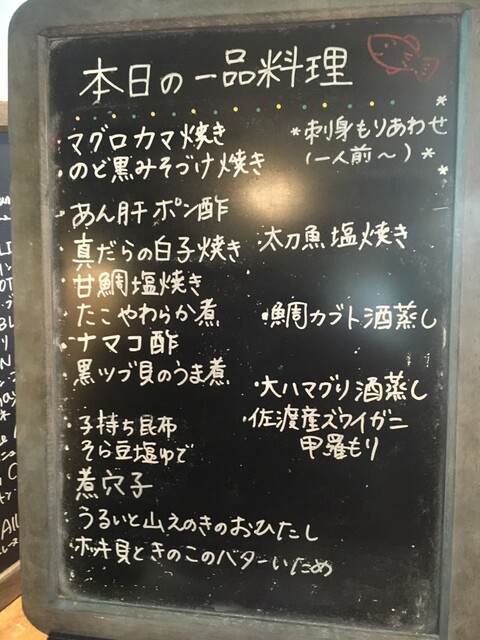 本日の一品料理
・マグロカマ焼き
・のど黒みそづけ焼き
*刺身もりあわせ
(一人前〜)*
・あん肝ポン酢
・真だらの白子焼き
・太刀魚塩焼き
・甘鯛塩焼き
・たこやわらか煮
・鯛カブト酒蒸し
・ナマコ酢
・黒ツブ貝のうま煮
・大ハマグリ酒蒸し
・佐渡産ズワイガニ
甲羅もり
・子持ち昆布
・そら豆塩ゆで
・煮穴子
・うるいと山えのきのおひたし
・ホッキ貝ときのこのバターいため